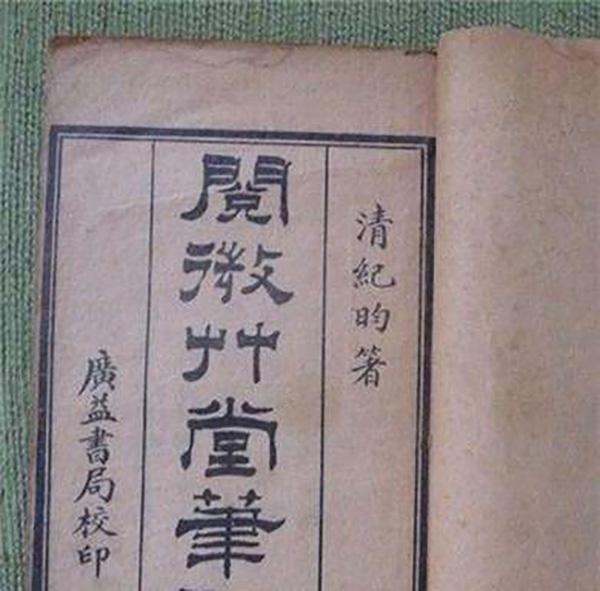 清紀昀箸
閱微艸堂筆
廣益書局校印